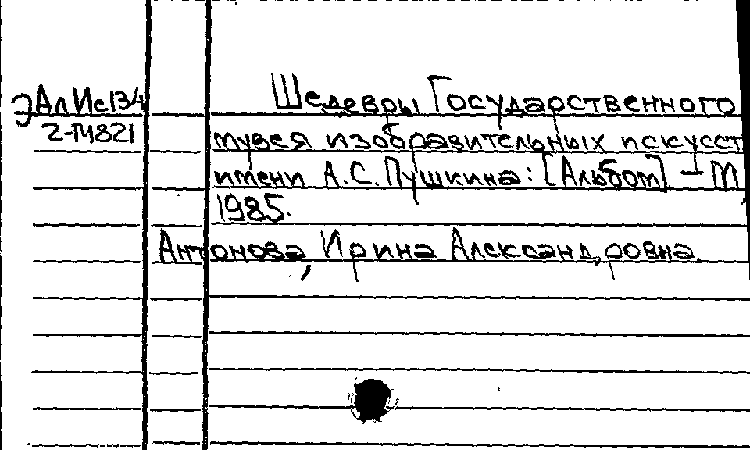 ЭАлИс134 Шедевры Государственного
2-14821 музея изобразительных искусст
имени А.С.Пушкина: [Альбом] – М,
1985.
Антонова, Ирина Александровна.